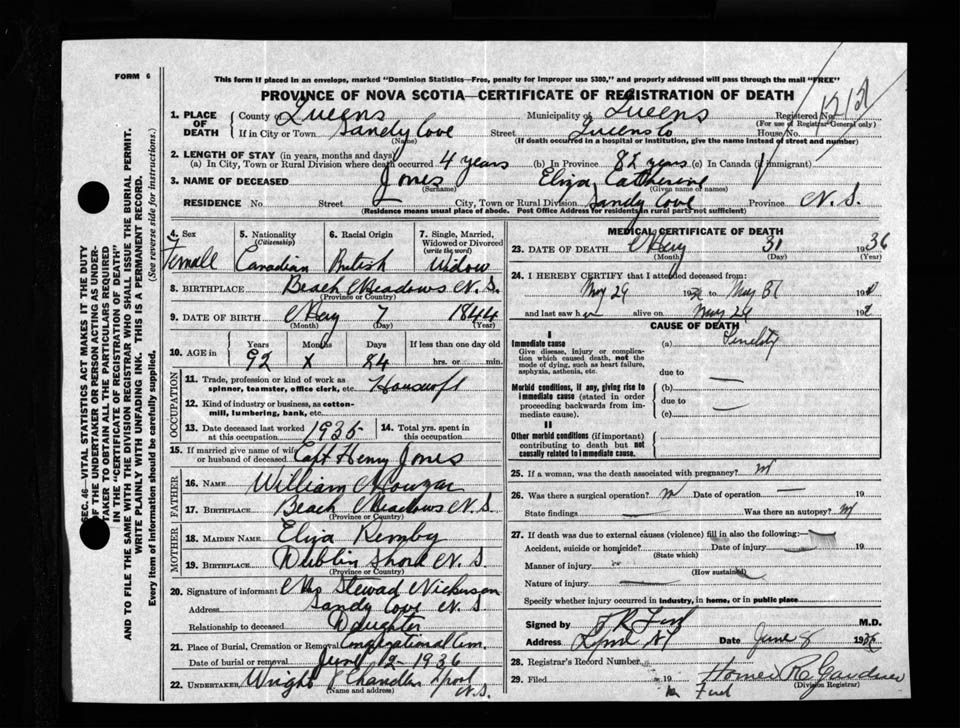 FORM 6
This form if placed in an envelope, marked "Dominion Statistics—Free, penalty for improper use $300," and properly addressed will pass through the mail "FREE"
PROVINCE OF NOVA SCOTIA—CERTIFICATE OF REGISTRATION OF DEATH
1. PLACE OF DEATH County of Queens Municipality of Queens Registered No.
(For use of Registrar General only)
If in City or Town Sandy Cove Street Queens Co House No.
(Name) (If death occurred in a hospital or institution, give the name instead of street and number)
2. LENGTH OF STAY (in years, months and days)
(a) In City, Town or Rural Division where death occurred 4 years (b) In Province 82 years (c) In Canada (if immigrant)
3. NAME OF DECEASED Jones Eliza Catherine
(Surname) (Given name or names)
RESIDENCE No Street City, Town or Rural Division Sandy Cove Province N.S.
(Residence means usual place of abode. Post Office Address for residents in rural parts not sufficient)
4. Sex Female
5. Nationality (Citizenship) Canadian
6. Racial Origin British
7. Single, Married, Widowed or Divorced (write the word) Widow
8. BIRTHPLACE Beach Meadows N.S.
(Province or Country)
9. DATE OF BIRTH May 7 1844
(Month) (Day) (Year)
10. AGE in Years Months Days If less than one day old
92 x 24 hrs. or min.
OCCUPATION
11. Trade, profession or kind of work as spinner, teamster, office clerk, etc.
12. Kind of industry or business, as cotton-mill, lumbering, bank, etc.
13. Date deceased last worked at this occupation 1935
14. Total yrs. spent in this occupation
15. If married give name of wife or husband of deceased Capt Henry Jones
FATHER
16. NAME William
17. BIRTHPLACE Beach Meadows N.S.
(Province or Country)
MOTHER
18. MAIDEN NAME Eliza
19. BIRTHPLACE Dublin Shore N.S.
(Province or Country)
20. Signature of informant Mrs Stewad Nickerson
Address Sandy Cove N.S.
Relationship to deceased Daughter
21. Place of Burial, Cremation or Removal Congregational Cem.
Date of burial or removal June 2 - 1936
22. UNDERTAKER Wright & Chandler N.S.
(Name and address)
MEDICAL CERTIFICATE OF DEATH
23. DATE OF DEATH May 31 1936
(Month) (Day) (Year)
24. I HEREBY CERTIFY that I attended deceased from:
May 29 19 to May 31 19
and last saw her alive on May 29 19
CAUSE OF DEATH
I
Immediate cause (a) Senility
Give disease, injury or complication which caused death, not the mode of dying, such as heart failure, asphyxia, asthenia, etc.
due to
Morbid conditions, if any, giving rise to immediate cause (stated in order proceeding backwards from immediate cause).
(b)
due to
(c)
II
Other morbid conditions (if important) contributing to death but not causally related to immediate cause.
25. If a woman, was the death associated with pregnancy?
26. Was there a surgical operation? Date of operation 19
State findings Was there an autopsy?
27. If death was due to external causes (violence) fill in also the following:—
Accident, suicide or homicide? Date of injury 19
(State which)
Manner of injury
(How sustained)
Nature of injury
Specify whether injury occurred in industry, in home, or in public place
Signed by M.D.
Address Date June 8 1936
28. Registrar's Record Number
29. Filed 19 Homer R Gardner
(Division Registrar)
SEC. 46—VITAL STATISTICS ACT MAKES IT THE DUTY
OF THE UNDERTAKER OR PERSON ACTING AS UNDER-
TAKER TO OBTAIN ALL THE PARTICULARS REQUIRED
IN THE "CERTIFICATE OF REGISTRATION OF DEATH"
AND TO FILE THE SAME WITH THE DIVISION REGISTRAR WHO SHALL ISSUE THE BURIAL PERMIT.
WRITE PLAINLY WITH UNFADING INK. THIS IS A PERMANENT RECORD.
Every item of information should be carefully supplied. (See reverse side for instructions.)